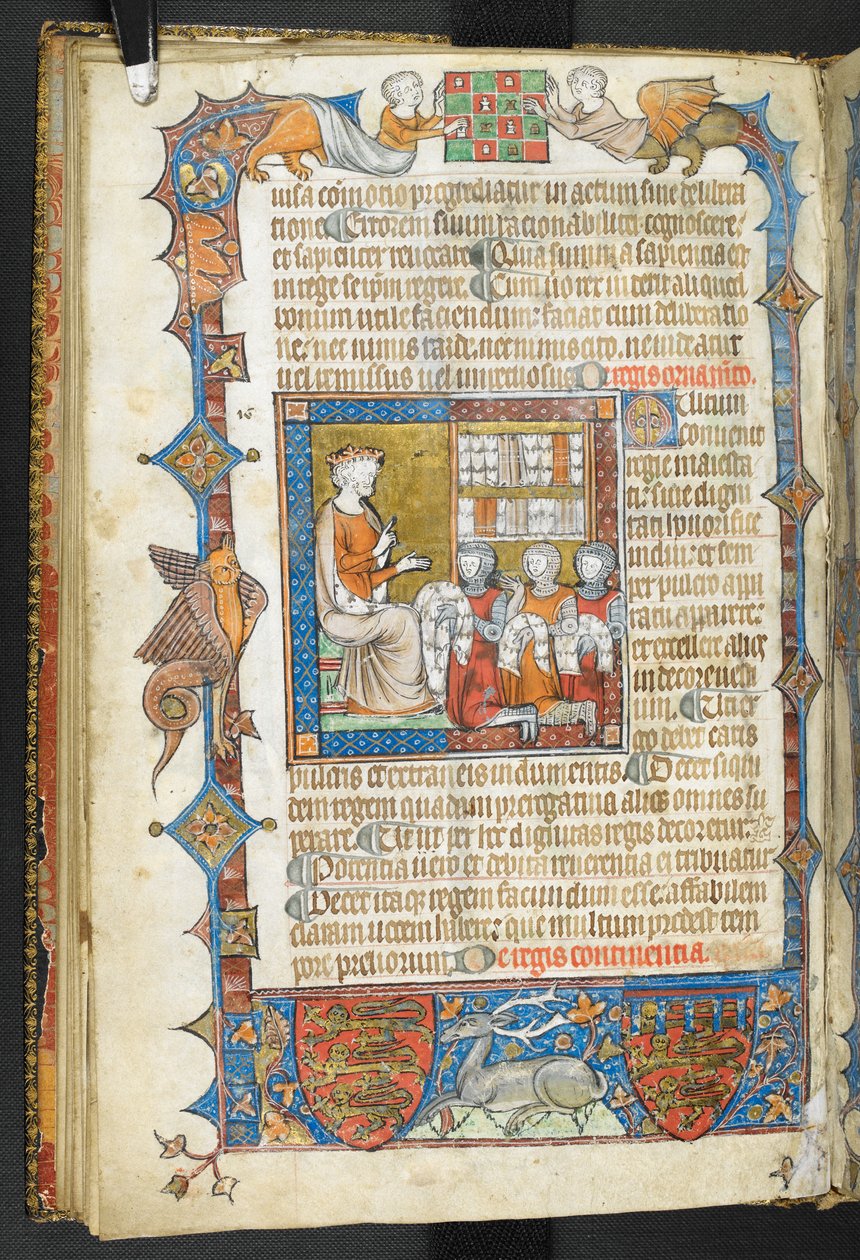 uisa co̅motio p̲grediatur in actum sine delibera
tione. Errorem suum racionabiliter cognoscere:
et sapienter reuocare. Quia summa sapiencia est
in rege seip̅m regere. Cum uo rex aliquod
bonum utile faciendum: faciat cum deliberatio
ne: nec nimis tarde. nec nimis cito. ne uideatur
uel remissus uel De regis ornam̅to.
16
Multum
conuenit
regie maiesta
ti: siue digni
tati honorifice
indui: et sem
per pulcro appa
ratu apparere:
et excellere alios
in decore uesti
um. Uti er
go debet caris
pulcris et extraneis indumentis. Decet siqui
dem regem quadam prerogatiua alios omnes su
perare. Ut per hec dignitas regis decoretur.
Potencia uero et debita reuerentia ei tribuatur
Decet itaq; regem facundum esse: affabilem
claram uocem habere: que multum prodest tem
pore preliorum. De regis continentia.